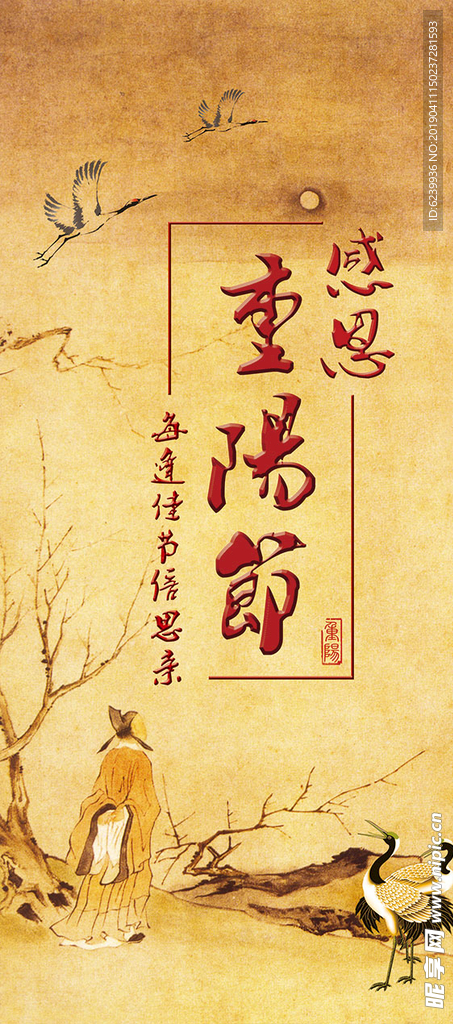 感恩
重陽節
每逢佳节倍思亲
重陽
昵享网 www.nipic.cn
ID:6239936 NO:20190411150237281593